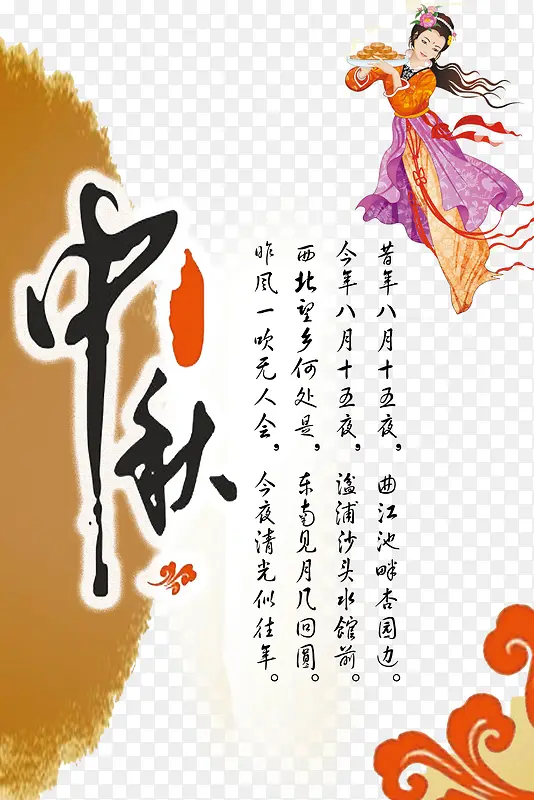 中秋
昔年八月十五夜，曲江池畔杏园边。
今年八月十五夜，湓浦沙头水馆前。
西北望乡何处是，东南见月几回圆。
昨风一吹无人会，今夜清光似往年。